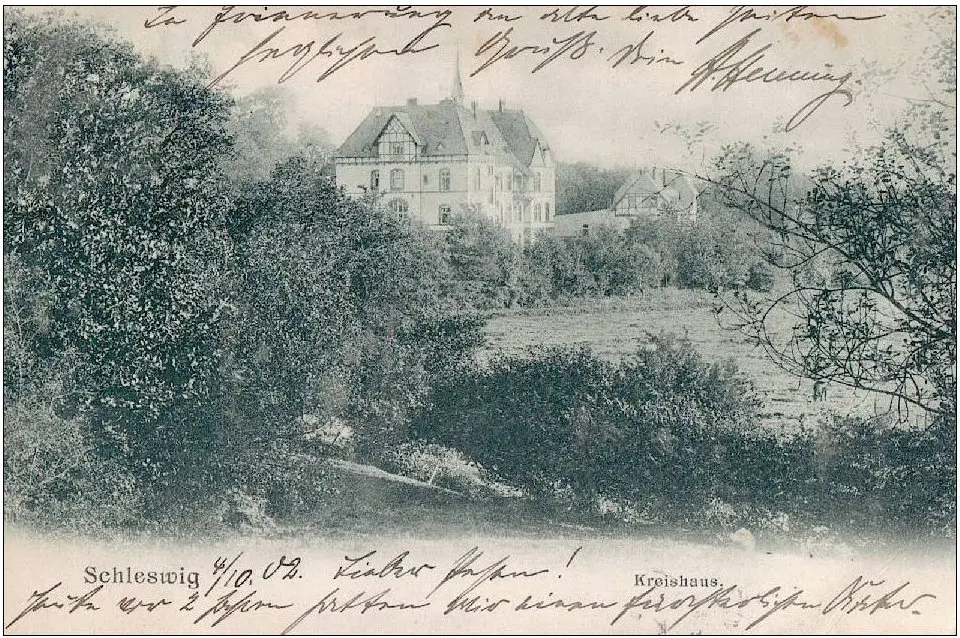 Zur Erinnerung an alte liebe Zeiten
herzlichen Gruß. Dein A. Henning.
Schleswig 4/10. 02. Lieber
Kreishaus.
Heute vor 2 Jahren hatten Wir einen fürchterlichen Kater.